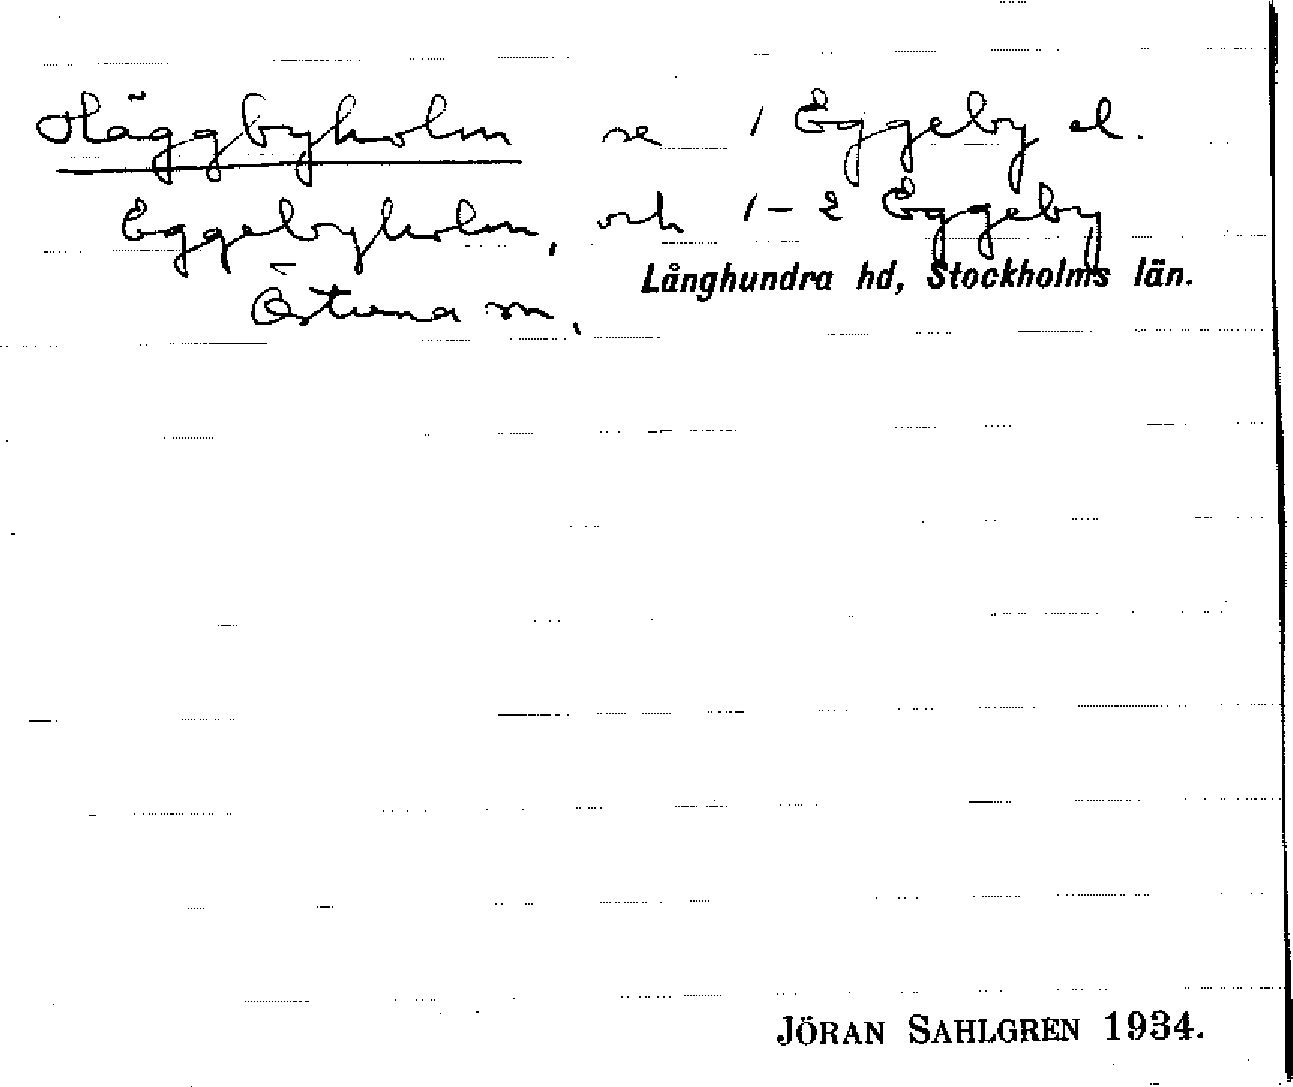 Häggbyholm se 1 Eggeby el.
Eggebyholm, och 1-2 Eggeby
Långhundra hd, Stockholms län.
Östuna sn,
JÖRAN SAHLGREN 1934.